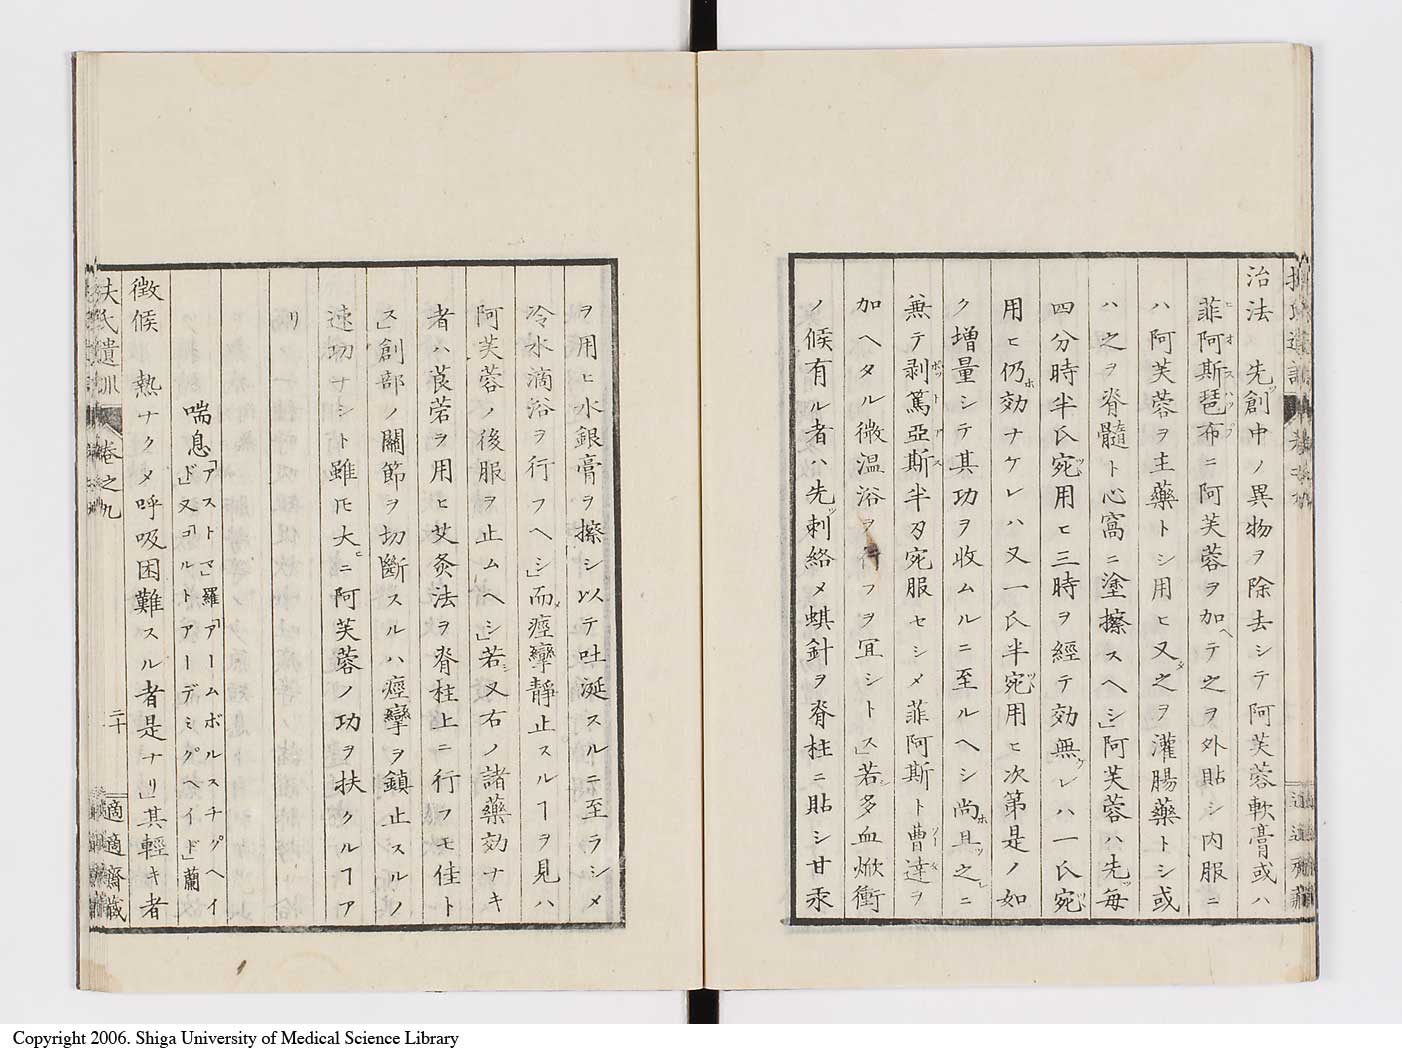 治法 先ツ創中ノ異物ヲ除去シテ阿芙蓉軟膏或ハ
菲阿斯琶布ニ阿芙蓉ヲ加ヘテ之ヲ外貼シ内服ニ
ハ阿芙蓉ヲ主藥トシ用ヒ又之ヲ灌腸藥トシ或
ハ之ヲ脊髓ト心窩ニ塗擦スヘシ」阿芙蓉ハ先ツ毎
四分時半氏宛用ヒ三時ヲ經テ効無レハ一氏宛
用ヒ仍効ナケレハ又一氏半宛用ヒ次第是ノ如
ク增量シテ其功ヲ收ムルニ至ルヘシ尚且之ニ
兼テ剥篤亞斯半刄宛服セシメ菲阿斯ト曹達ヲ
加ヘタル微温浴ヲ行フヲ冝シトス」若多血焮衝
ノ候有ル者ハ先ツ刺絡メ蜞針ヲ脊柱ニ貼シ甘汞
ヲ用ヒ水銀膏ヲ擦シ以テ吐涎スルニ至ラシメ
冷水滴浴ヲ行フヘシ」而痙攣靜止スルヿヲ見ハ
阿芙蓉ノ後服ヲ止ムヘシ」若シ又右ノ諸藥効ナキ
者ハ莨菪ヲ用ヒ艾灸法ヲ脊柱上ニ行フモ佳ト
ス」創部ノ關節ヲ切斷スルハ痙攣ヲ鎮止スルノ
速功ナシト雖𪜈大ニ阿芙蓉ノ功ヲ扶クルヿア
リ
喘息「アストマ」羅「アームボルスチグヘイ
ド」又「コルトアーデミグヘイド」蘭
徴候 熱ナクメ呼吸困難スル者是ナリ」其輕キ者
扶氏遺訓 卷之九
二十
適適齋藏
Copyright 2006. Shiga University of Medical Science Library